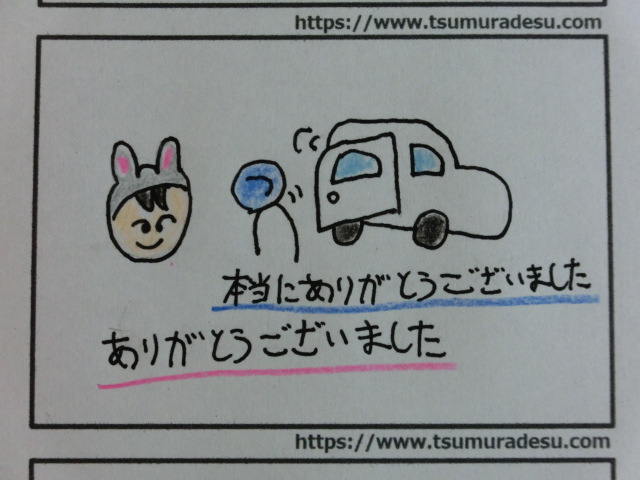 https://www.tsumuradesu.com
本当にありがとうございました
ありがとうございました
https://www.tsumuradesu.com